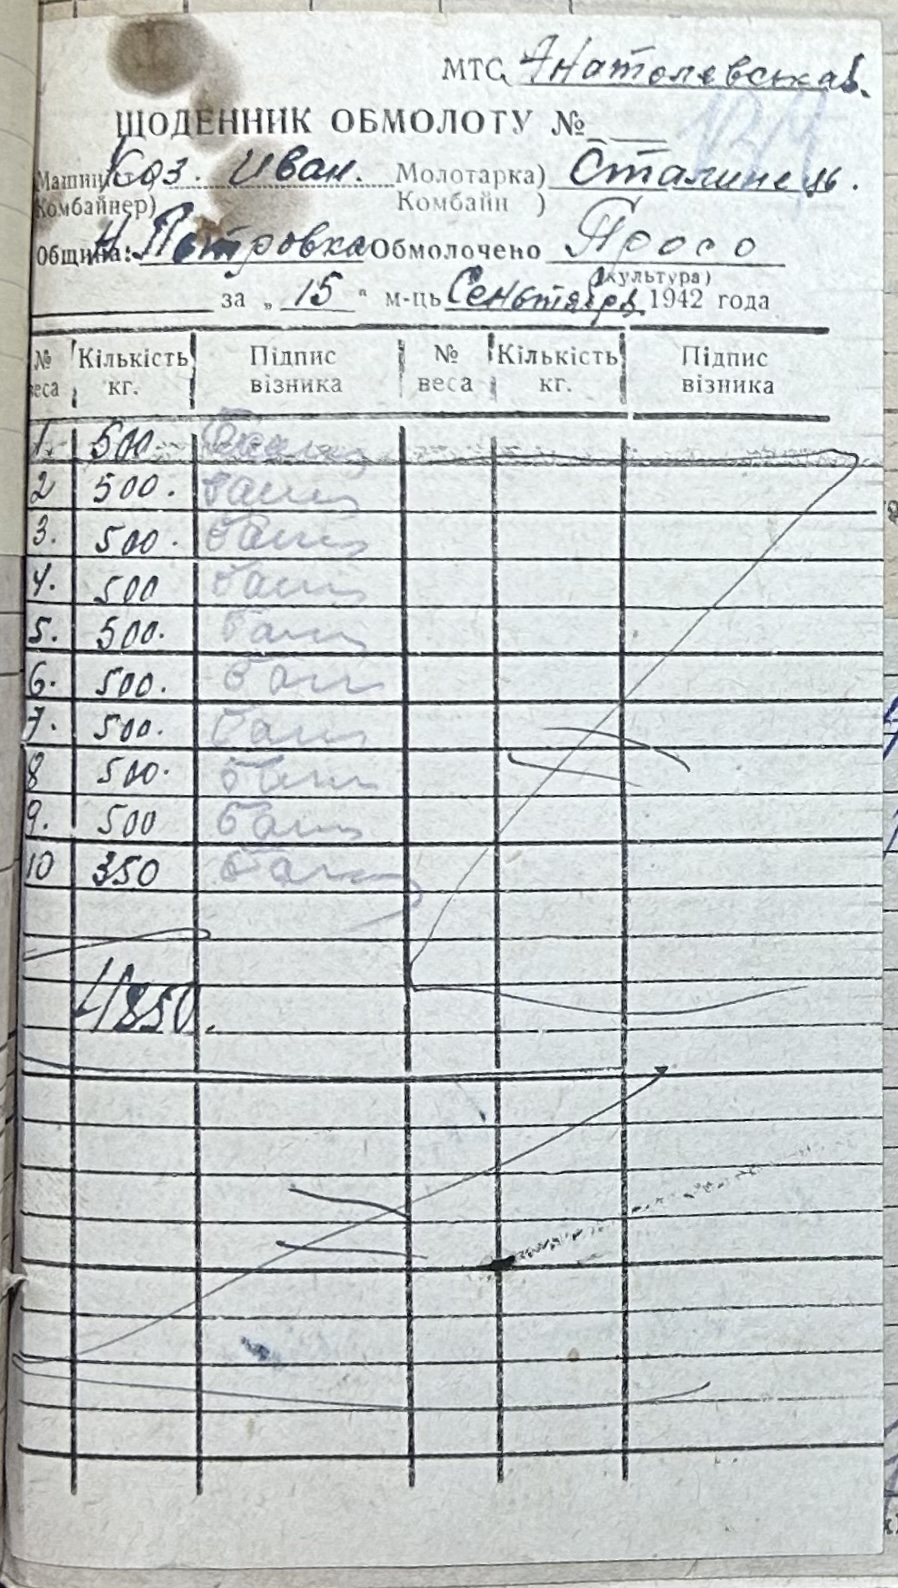 МТС Анатолевськая.
ЩОДЕННИК ОБМОЛОТУ №
Машиніст) Коз. Иван. Молотарка) Сталинець.
Комбайнер) Комбайн )
Община: Н Петровка Обмолочено Просо
(культура)
за „ 15 " м-ць Сентября 1942 года
№ веса Кількість кг. Підпис візника № веса Кількість кг. Підпис візника
1. 500.
2 500.
3. 500.
4. 500
5. 500.
6. 500.
7. 500.
8 500.
9. 500
10 350
4850.